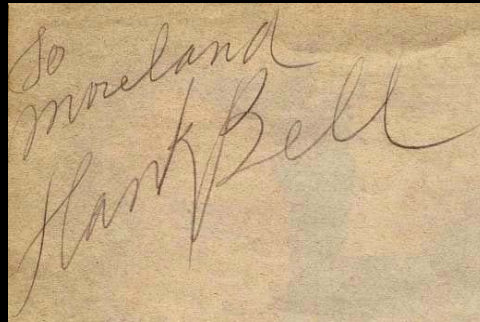 To
Moreland
Hank Bell